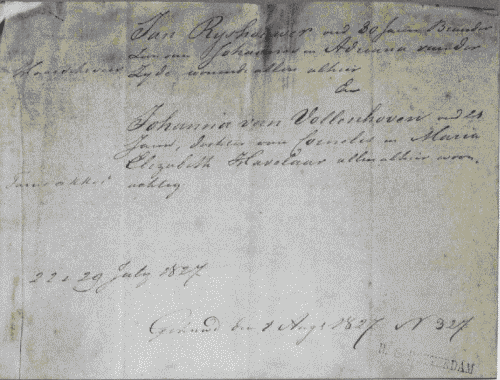 Jan Ryshouwer oud 30 Jaren Brander
Zoon van Johannes en Adriana van der
Lyde, wonende allen alhier
En
Johanna van Vollenhoven oud 24
Jaren, dochter van Cornelis en Maria
Elizabeth Havelaar allen alhier woon-
achtig
22 & 29 July 1827
Gehuwd den 1 Augs 1827 N 327